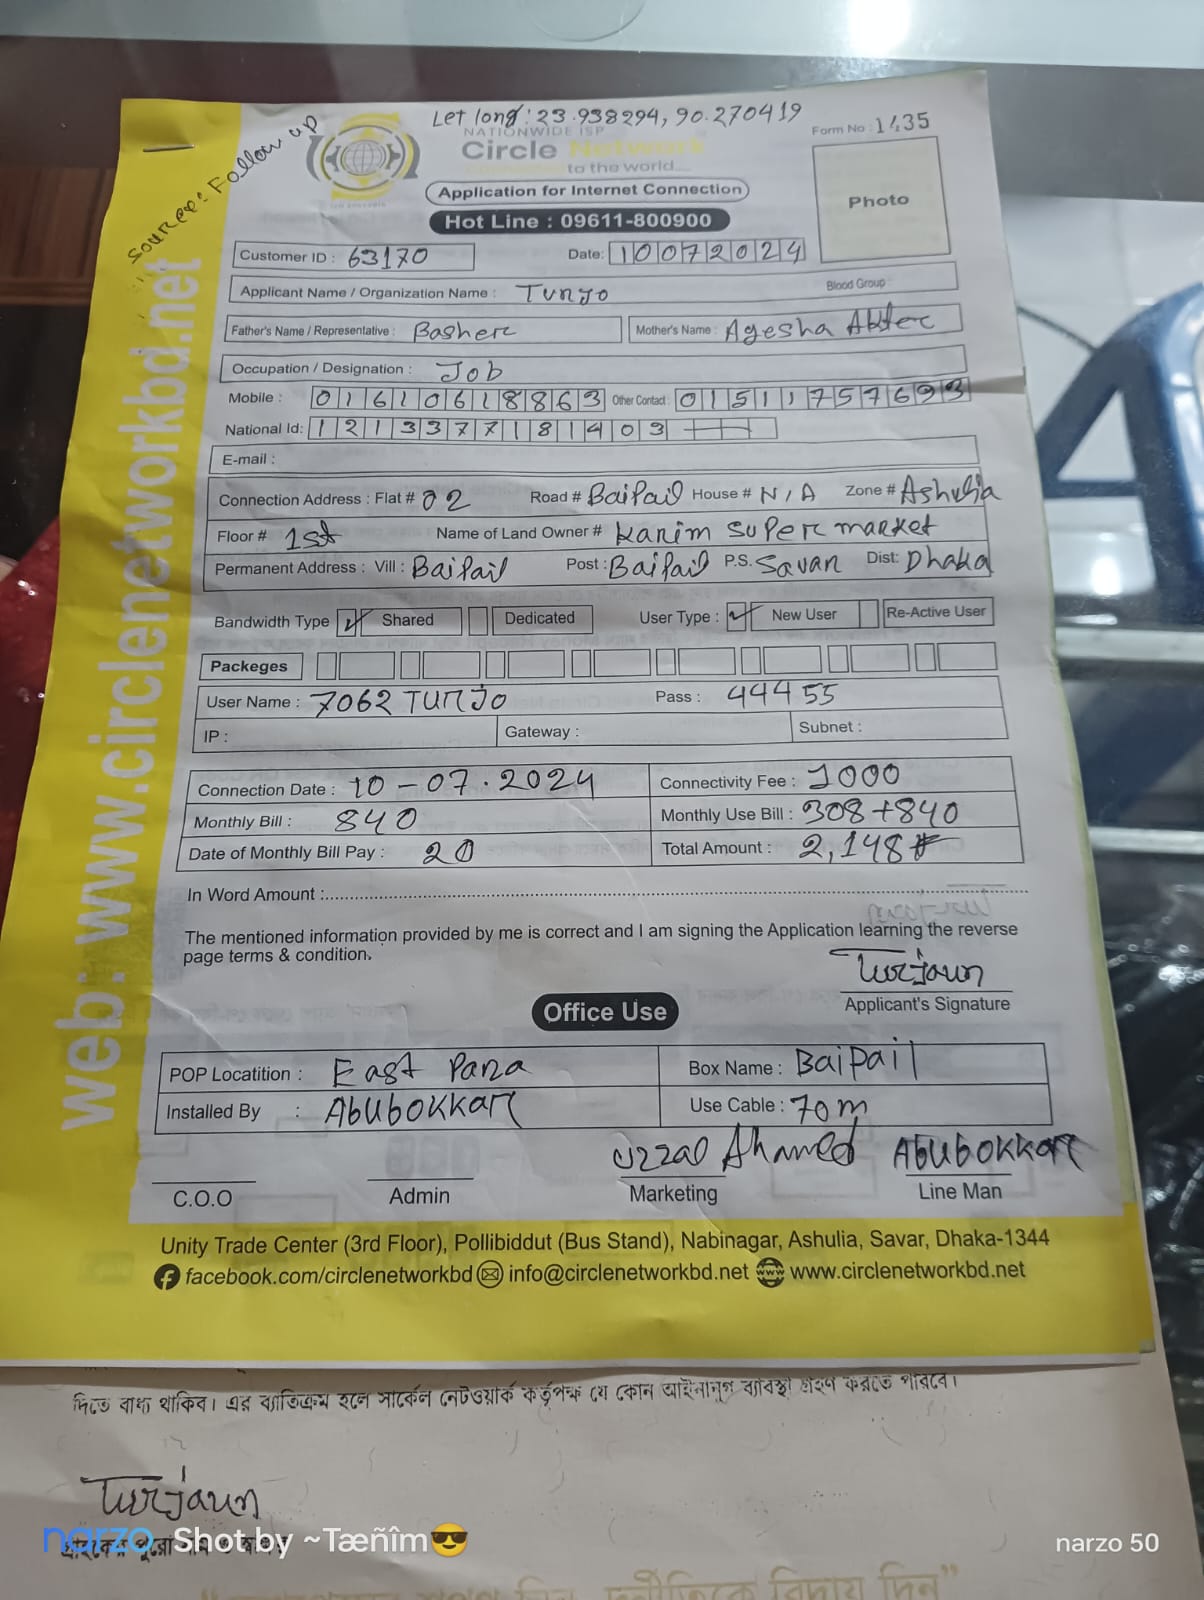 Let long: 23.938294, 90.270419
Source: Follow up
NATIONWIDE ISP
Form No : 1435
Circle Network
to the world....
Application for Internet Connection
Photo
Hot Line : 09611-800900
Customer ID : 63170 Date: 10072024
Applicant Name / Organization Name : Tunjo Blood Group :
Father's Name / Representative : Basher Mother's Name : Ayesha Akter
Occupation / Designation : Job
Mobile : 01610618863 Other Contact : 01511757693
National Id: 1213377181403
E-mail :
Connection Address : Flat # 02 Road # Baipail House # N/A Zone # Ashulia
Floor # 1st Name of Land Owner # Karim super market
Permanent Address : Vill : Baipail Post : Baipail P.S. Savar Dist: Dhaka
Bandwidth Type ✓ Shared Dedicated User Type : ✓ New User Re-Active User
Packeges
User Name : 7062 TUnJo Pass : 44455
IP : Gateway : Subnet :
Connection Date : 10-07.2024 Connectivity Fee : 1000
Monthly Bill : 840 Monthly Use Bill : 308+840
Date of Monthly Bill Pay : 20 Total Amount : 2,148
In Word Amount :
The mentioned information provided by me is correct and I am signing the Application learning the reverse
page terms & condition.
Turjaun
Applicant's Signature
Office Use
POP Locatition : East Para Box Name : Baipail
Installed By : Abubokkar Use Cable : 70m
Uzzal Ahamed Abubokkar
C.O.O Admin Marketing Line Man
Unity Trade Center (3rd Floor), Pollibiddut (Bus Stand), Nabinagar, Ashulia, Savar, Dhaka-1344
facebook.com/circlenetworkbd info@circlenetworkbd.net www.circlenetworkbd.net
web: www.circlenetworkbd.net
দিতে বাধ্য থাকিব। এর ব্যতিক্রম হলে সার্কেল নেটওয়ার্ক কর্তৃপক্ষ যে কোন আইনানুগ ব্যাবস্থা গ্রহণ করতে পারিবে।
Turjaun
narzo Shot by ~Tæñîm😎 narzo 50